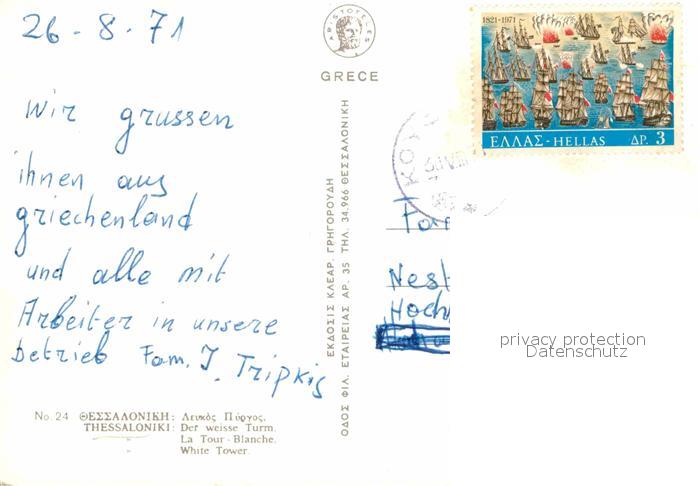 26-8-71
Wir grussen
ihnen aus
griechenland
und alle mit
Arbeiter in unsere
betrieb Fam. J. Tripkis
No. 24 ΘΕΣΣΑΛΟΝΙΚΗ: Λευκὸς Πύργος.
THESSALONIKI: Der weisse Turm.
La Tour-Blanche.
White Tower.
ARISTOTELES
GRECE
ΕΚΔΟΣΙΣ ΚΛΕΑΡ. ΓΡΗΓΟΡΟΥΔΗ
ΟΔΟΣ ΦΙΛ. ΕΤΑΙΡΕΙΑΣ ΑΡ. 35 ΤΗΛ. 34.966 ΘΕΣΣΑΛΟΝΙΚΗ
1821-1971
ΕΛΛΑΣ-HELLAS ΔΡ. 3
Nest
Hoch
privacy protection
Datenschutz